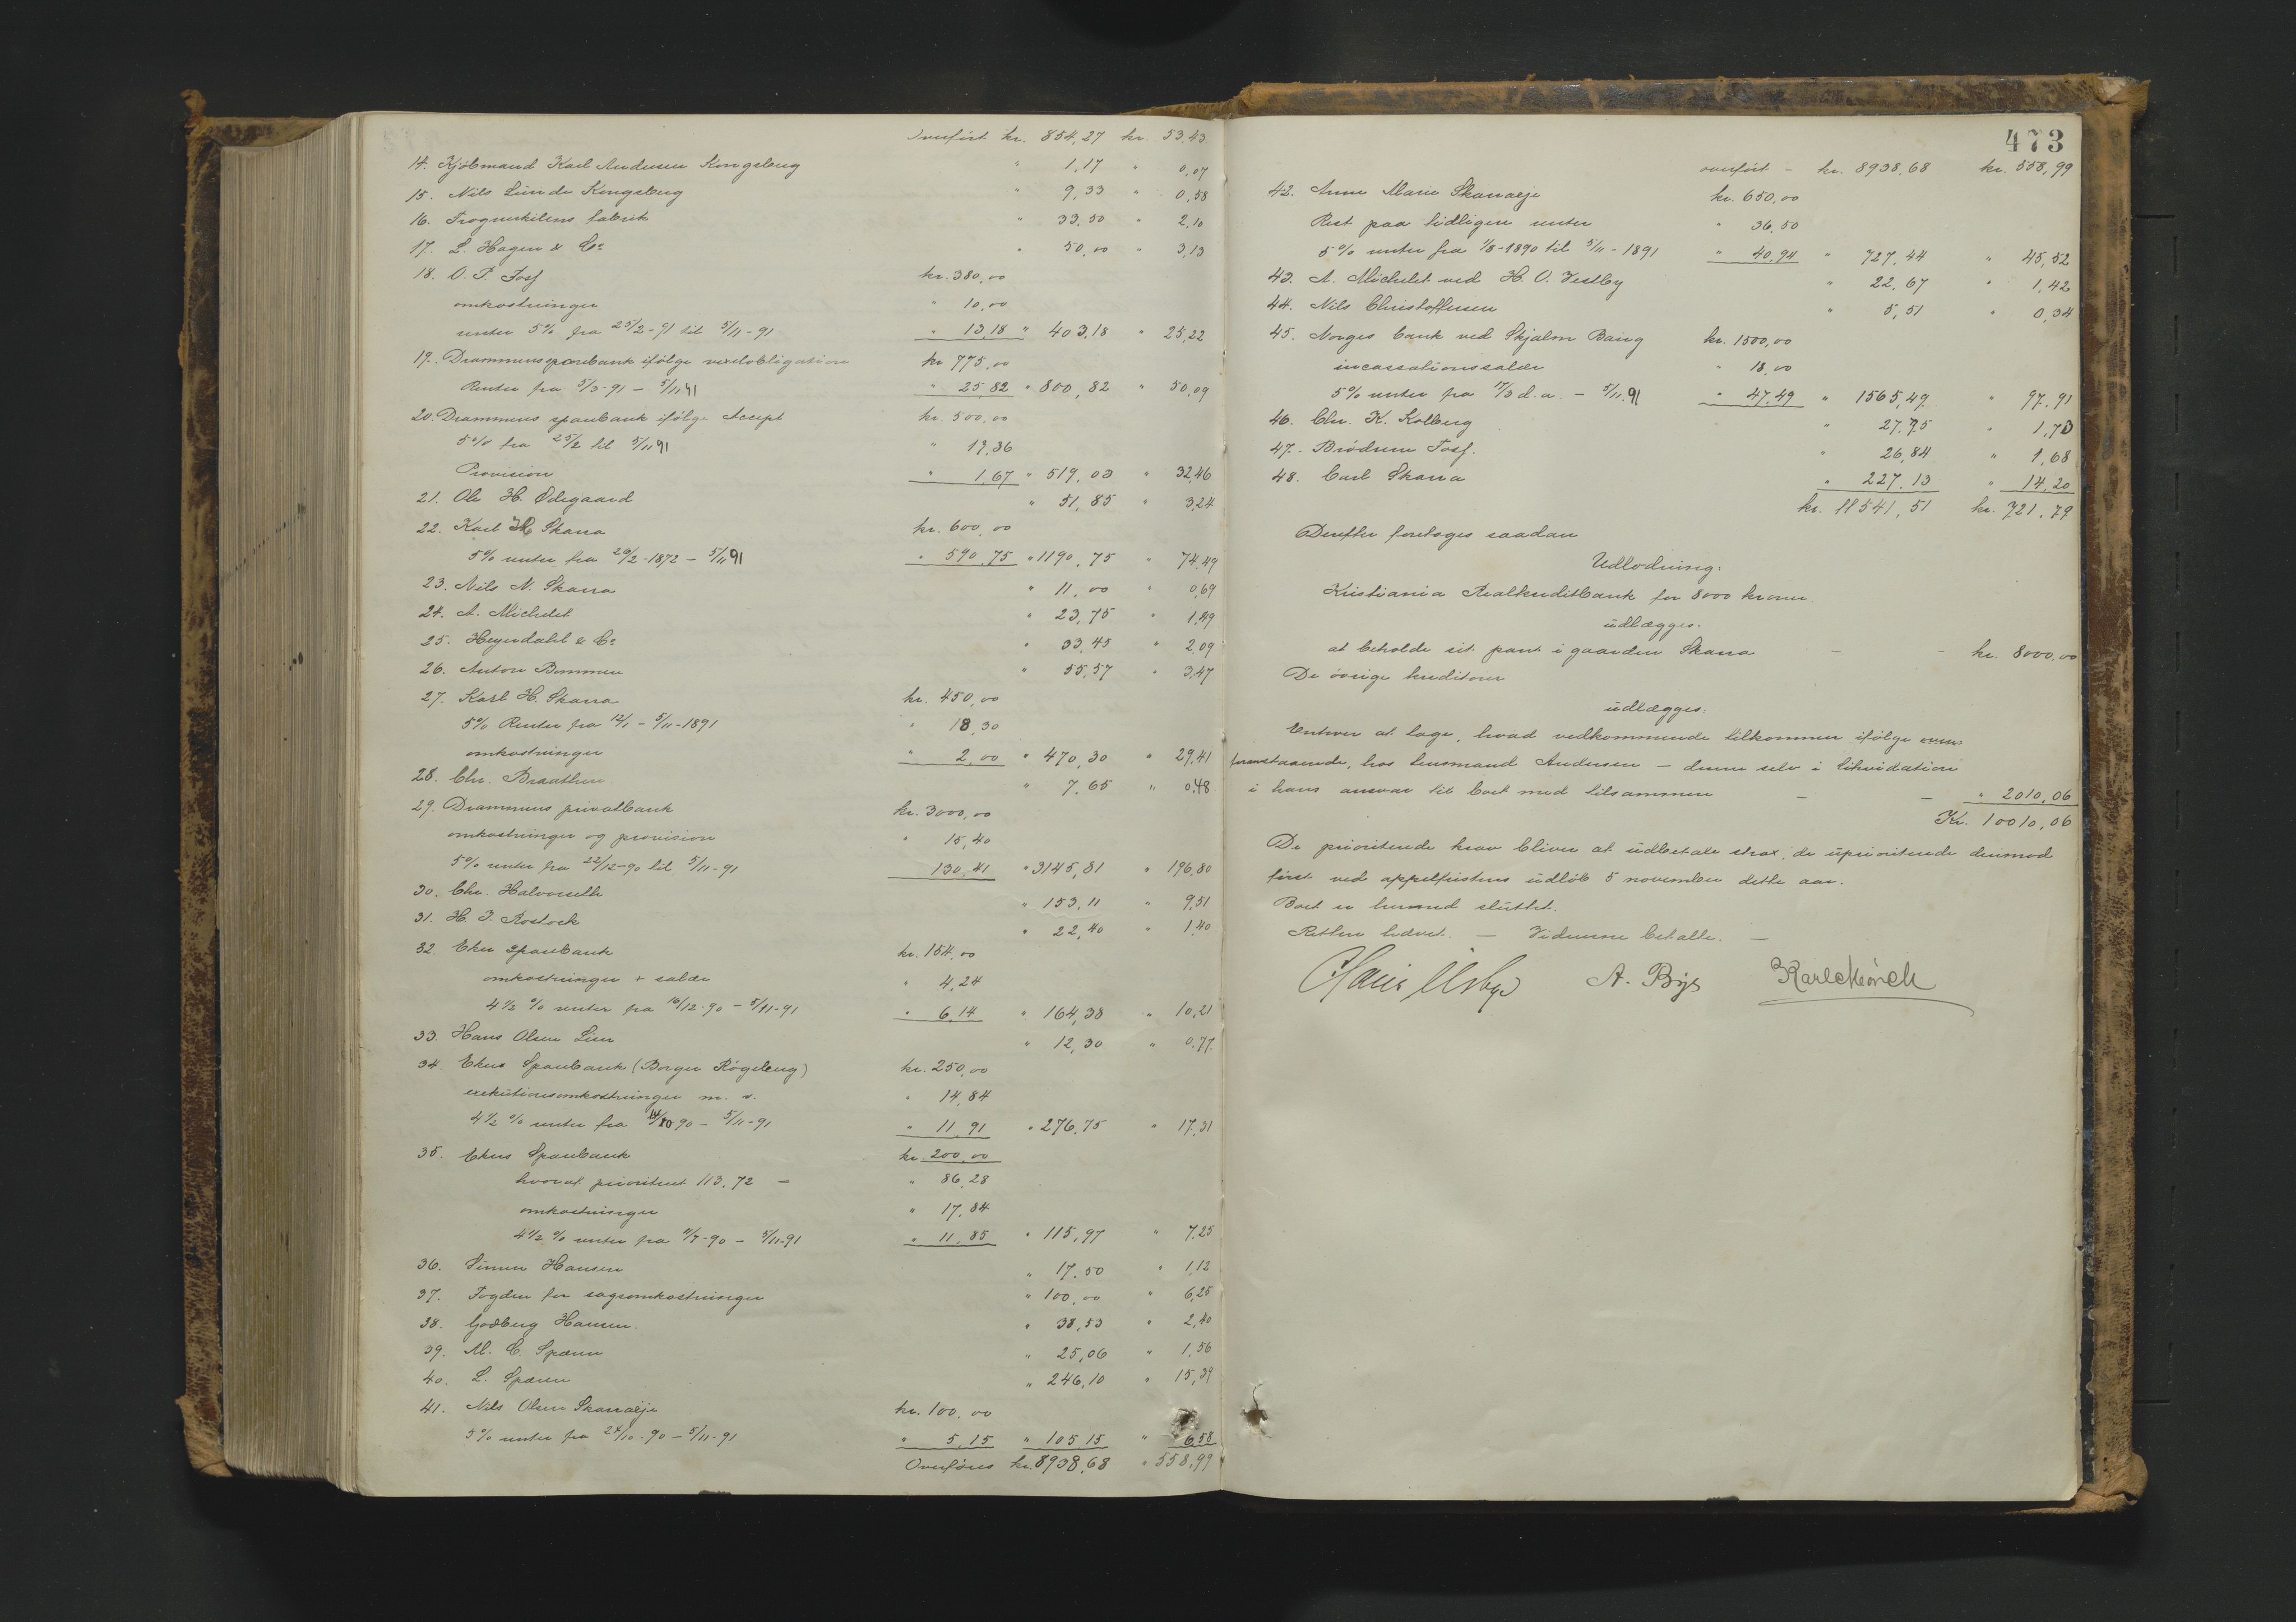 Overført kr. 854,27 kr. 53,43
14. Kjøbmand Karl Andersen Kongsberg " 1,17 " 0,07
15. Nils Lunde Kongsberg " 9,33 " 0,58
16. Trognerkilens fabrik " 33,50 " 2,10
17. L. Hagen & Co " 50,00 " 3,13
18. O. P. Fosf kr. 380,00
omkostninger " 10,00
renter 5% fra 25/2-91 til 5/11-91 " 13,18 " 403,18 " 25,22
19. Drammens sparebank ifølge vexelobligation kr 775,00
Renter fra 5/3-91 - 5/11 91 " 25,82 " 800,82 " 50,09
20. Drammens sparebank ifølge Accept kr. 500,00
5% fra 25/2 til 5/11 91 " 17,36
Provision " 1,67 " 519,03 " 32,46
21. Ole H. Ødegaard " 51,85 " 3,24
22. Karl H Skarra kr. 600,00
5% renter fra 20/2-1872 - 5/11 91 " 590,75 " 1190,75 " 74,49
23. Nils N. Skarra " 11,00 " 0,69
24. A. Michelet " 23,75 " 1,49
25. Heyerdahl & Co " 33,45 " 2,09
26. Anton Bommen " 55,57 " 3,47
27. Karl H. Skarra kr. 450,00
5% Renter fra 12/1 - 5/11-1891 " 18,30
omkostninger " 2,00 " 470,30 " 29,41
28. Chr. Braathen " 7,65 " 0,48
29. Drammens privatbank kr. 3000,00
omkostninger og provision " 15,40
5% renter fra 22/12-90 til 5/11-91 130,41 " 3145,81 " 196,80
30. Chr. Halvorseth " 153,11 " 9,51
31. H. J. Rostock " 22,40 " 1,40
32. Eker Sparebank kr. 154,00
omkostninger + salær " 4,24
4 1/2 % renter fra 16/12-90 - 5/11-91 " 6,14 " 164,38 " 10,21
33. Hans Olsen Lien " 12,30 " 0,77
34. Ekers Sparebank (Borger Røgeberg) kr. 250,00
exekutionsomkostninger m. v. " 14,84
4 1/2 % renter fra 14/10 90 - 5/11-91 " 11,91 " 276,75 " 17,31
35. Ekers Sparebank kr. 200,00
hvoraf prioritert 113,72 - " 86,28
omkostninger " 17,84
4 1/2 % renter fra 11/7-90 - 5/11-91 " 11,85 " 115,97 " 7,25
36. Simen Hansen " 17,50 " 1,12
37. Fogden for sagsomkostninger " 100,00 " 6,25
38. Godberg Hansen. " 38,53 " 2,40
39. M. C. Spæren " 25,06 " 1,56
40. L. Spæren " 246,10 " 15,39
41. Nils Olsen Skarraeje kr. 100,00
5% renter fra 24/10-90 - 5/11-91 " 5,15 " 105,15 " 6,58
Overføres kr. 8938,68 " 558,99
473
overført - kr. 8938,68 kr. 558,99
42. Anne Marie Skarraeje kr. 650,00
Rest paa tidligere renter " 36,50
5% renter fra 1/8-1890 til 5/11-1891 " 40,94 " 727,44 " 45,52
43. A. Michelet ved H. O. Vestby " 22,67 " 1,42
44. Nils Christoffersen " 5,51 " 0,34
45. Norges bank ved Skjalm Bang kr. 1500,00
incassationssalær " 18,00
5% renter fra 17/3 d.a. - 5/11 91 " 47,49 " 1565,49 " 97,91
46. Chr. K. Kolberg " 27,75 " 1,73
47. Brødrene Fosf. " 26,84 " 1,68
48. Carl Skarra " 227,13 " 14,20
kr. 11541,51 kr. 721,79
Derefter foretages saadan
Udlodning:
Kristiania Realkreditbank for 8000 kroner.
udlægges:
at beholde sit pant i gaarden Skarra - - kr. 8000,00
De øvrige kreditorer
udlægges:
Enhver at tage, hvad vedkommende tilkommer ifølge oven-
foranstaaende, hos lensmand Andersen - denne selv i likvidation
i hans ansvar til boet med tilsammen - - " 2010,06
Kr. 10010,06
De prioriterede krav bliver at udbetale strax, de uprioriterede derimod
først ved appelfristens udløb 5 november dette aar.
Boet er hermed sluttet.
Retten hævet. - Vidnerne betalte. -
A. Bye Karl Mørch